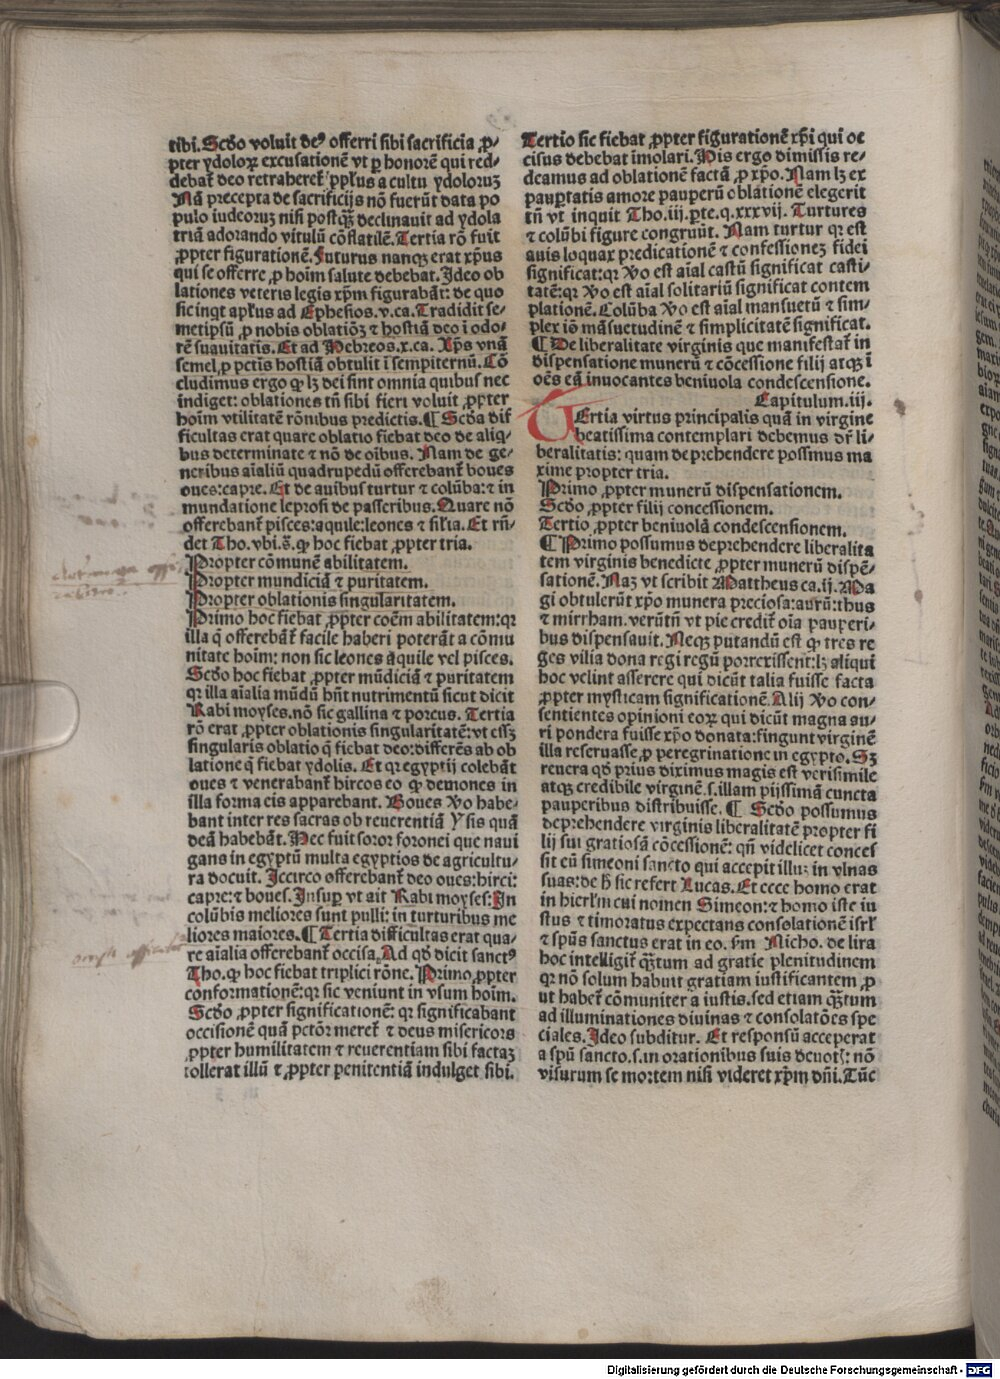 tibi. Scđo voluit deꝰ offerri sibi sacrificia ꝓ-
pter ydoloꝝ excusationē vt ꝑ honorē qui red-
debat̄ deo retraheret̄ ppl̄us a cultu ydoloruꝫ
Nā precepta de sacrificijs nō fuerūt data po
pulo iudeoruꝫ nisi postq̄ꝫ declinauit ad ydola
triā adorando vitulū cōflatilē. Tertia rō fuit
ꝓpter figurationē. Futurus nanqꝫ erat xp̄us
qui se offerre ꝓ hoīm salute debebat. Ideo ob
lationes veteris legis xp̄m figurabāt: de quo
sic inqt apl̄us ad Ephesios. v. ca. Tradidit se-
metipsū ꝓ nobis oblatiōꝫ ⁊ hostiā deo ī odo-
rē suauitatis. Et ad Hebreos. x. ca. Xp̄s vnā
semel ꝓ pctīs hostiā obtulit ī sempiternū. Cō
cludimus ergo ꝙ lꝫ dei sint omnia quibus nec
indiget: oblationes tn̄ sibi fieri voluit ꝓpter
hoīm vtilitatē rōnibus predictis. ¶ Scđa dif
ficultas erat quare oblatio fiebat deo de aliq-
bus determinate ⁊ nō de oībus. Nam de ge-
neribus aīaliū quadrupedū offerebant̄ boues
oues: capre. Et de auibus turtur ⁊ colūba: ⁊ in
mundatione leprosi de passeribus. Quare nō
offerebant̄ pisces: aquile: leones ⁊ sil̄ia. Et rn̄-
det Tho. vbi. s̄. ꝙ hoc fiebat ꝓpter tria.
Propter cōmunē abilitatem.
Propter mundiciā ⁊ puritatem.
Propter oblationis singularitatem.
Primo hoc fiebat ꝓpter coēm abilitatem: qꝛ
illa q̄ offerebāt̄ facile haberi poterāt a cōmu
nitate hoīm: non sic leones aquile vel pisces.
Scđo hoc fiebat ꝓpter mūdiciā ⁊ puritatem
qꝛ illa aīalia mūdū hn̄t nutrimentū sicut dicit
Rabi moyses. nō sic gallina ⁊ porcus. Tertia
rō erat ꝓpter oblationis singularitatē: vt essꝫ
singularis oblatio q̄ fiebat deo: differēs ab ob
latione q̄ fiebat ydolis. Et qꝛ egyptij colebāt
oues ⁊ venerabant̄ hircos eo ꝙ demones in
illa forma eis apparebant. Boues ꝟo habe-
bant inter res sacras ob reuerentiā Ysis quā
deā habebāt. Hec fuit soror foronei que naui
gans in egyptū multa egyptios de agricultu-
ra docuit. Iccirco offerebant̄ deo oues: hirci:
capre: ⁊ boues. Insuꝑ vt ait Rabi moyses: In
colūbis meliores sunt pulli: in turturibus me
liores maiores. ¶ Tertia difficultas erat qua-
re aīalia offerebant̄ occisa. Ad qđ dicit sanctꝰ
Tho. ꝙ hoc fiebat triplici rōne. Primo ꝓpter
conformationē: qꝛ sic veniunt in vsum hoīm.
Scđo ꝓpter significationē: qꝛ significabant
occisionē quā pctōr meret̄ ⁊ deus misericors
ꝓpter humilitatem ⁊ reuerentiam sibi factaꝫ
tollerat illū ⁊ ꝓpter penitentiā indulget sibi.
Tertio sic fiebat ꝓpter figurationē xp̄i qui oc
cisus debebat īmolari. His ergo dimissis re-
deamus ad oblationē factā ꝓ xp̄o. Nam lꝫ ex
pauꝑtatis amore pauperū oblationē elegerit
tn̄ vt inquit Tho. iij. ꝑte. q. xxxvij. Turtures
⁊ colūbi figure congruūt. Nam turtur qꝛ est
auis loquax predicationē ⁊ confessioneꝫ fidei
significat: qꝛ ꝟo est aīal castū significat casti-
tatē: qꝛ ꝟo est aīal solitariū significat contem
plationē. Colūba ꝟo est aīal mansuetū ⁊ sim-
plex iō māsuetudinē ⁊ simplicitatē significat.
¶ De liberalitate virginis que manifestat̄ in
dispensatione munerū ⁊ cōcessione filij atqꝫ ī
oēs eā inuocantes beniuola condescensione.
Capitulum. iij.
Tertia virtus principalis quā in virgine
beatissima contemplari debemus dr̄ li-
beralitatis: quam deprehendere possimus ma
xime propter tria.
Primo ꝓpter munerū dispensationem.
Scđo ꝓpter filij concessionem.
Tertio ꝓpter beniuolā condescensionem.
¶ Primo possumus deprehendere liberalita
tem virginis benedicte ꝓpter munerū dispē-
sationē. Naꝫ vt scribit Mattheus ca. ij. Ma
gi obtulerūt xp̄o munera preciosa: aurū: thus
⁊ mirrham. verūtn̄ vt pie credit̄ oīa pauperi-
bus dispensauit. Neqꝫ putandū est ꝙ tres re
ges vilia dona regi regū porrexissent: lꝫ aliqui
hoc velint asserere qui dicūt talia fuisse facta
ꝓpter mysticam significationē. Alij ꝟo con-
sentientes opinioni eoꝝ qui dicūt magna au-
ri pondera fuisse xp̄o donata: fingunt virginē
illa reseruasse ꝓ peregrinatione in egypto. Sꝫ
reuera qđ prius diximus magis est verisimile
atqꝫ credibile virginē. s. illam pijssimā cuncta
pauperibus distribuisse. ¶ Scđo possumus
deprehendere virginis liberalitatē propter fi
lij sui gratiosā cōcessionē: qn̄ videlicet conces
sit eū simeoni sancto qui accepit illuꝫ in vlnas
suas: de h̄ sic refert Lucas. Et ecce homo erat
in hierl̄m cui nomen Simeon: ⁊ homo iste iu
stus ⁊ timoratus expectans consolationē isrl̄
⁊ spūs sanctus erat in eo. ẜm Nicho. de lira
hoc intelligit̄ q̄ꝫtum ad gratie plenitudinem
qꝛ nō solum habuit gratiam iustificantem ꝓ
ut habet̄ cōmuniter a iustis. sed etiam q̄ꝫtum
ad illuminationes diuinas ⁊ consolatōes spe
ciales. Ideo subditur. Et responsū acceperat
a spū sancto. s. in orationibus suis deuotꝭ: nō
visurum se mortem nisi videret xp̄m dn̄i. Tūc
Digitalisierung gefördert durch die Deutsche Forschungsgemeinschaft - DFG